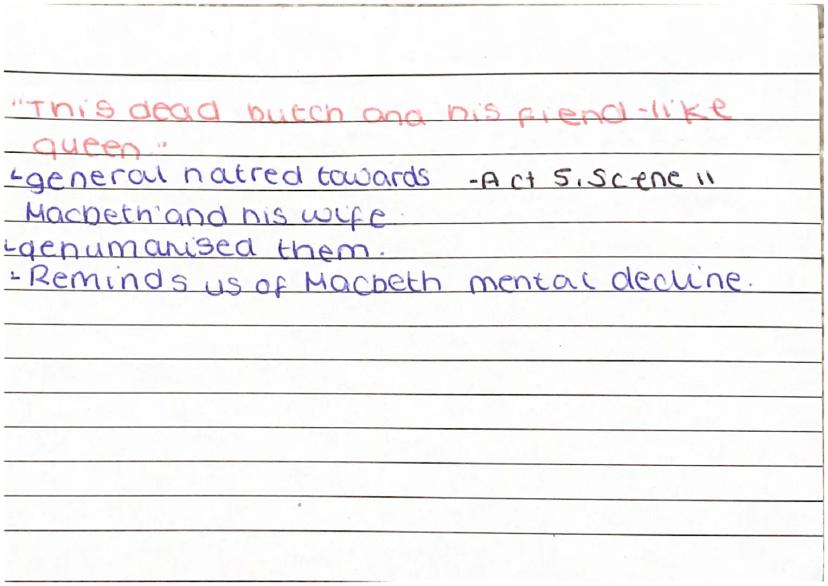 "This dead butch and his fiend-like
queen."
↳general hatred towards -Act 5, Scene 11
Macbeth and his wife.
↳dehumanised them.
↳Reminds us of Macbeth mental decline.